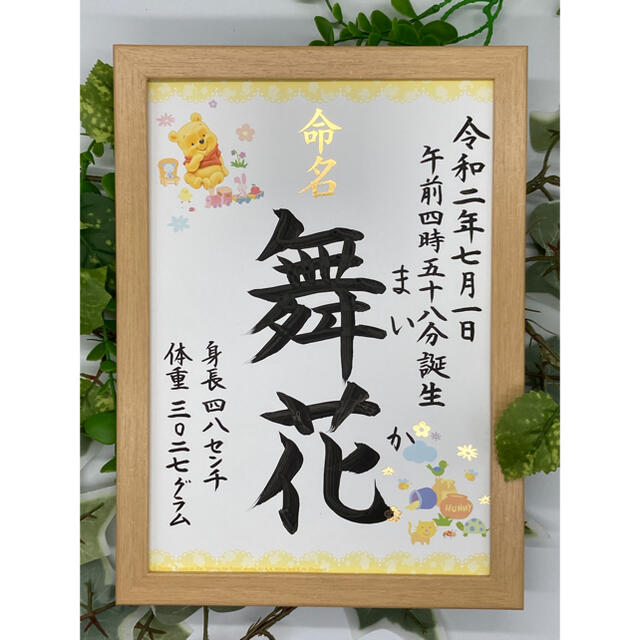 令和二年七月一日
午前四時五十八分誕生
命名
舞花
まいか
身長 四八センチ
体重 三〇二七グラム
HUNNY